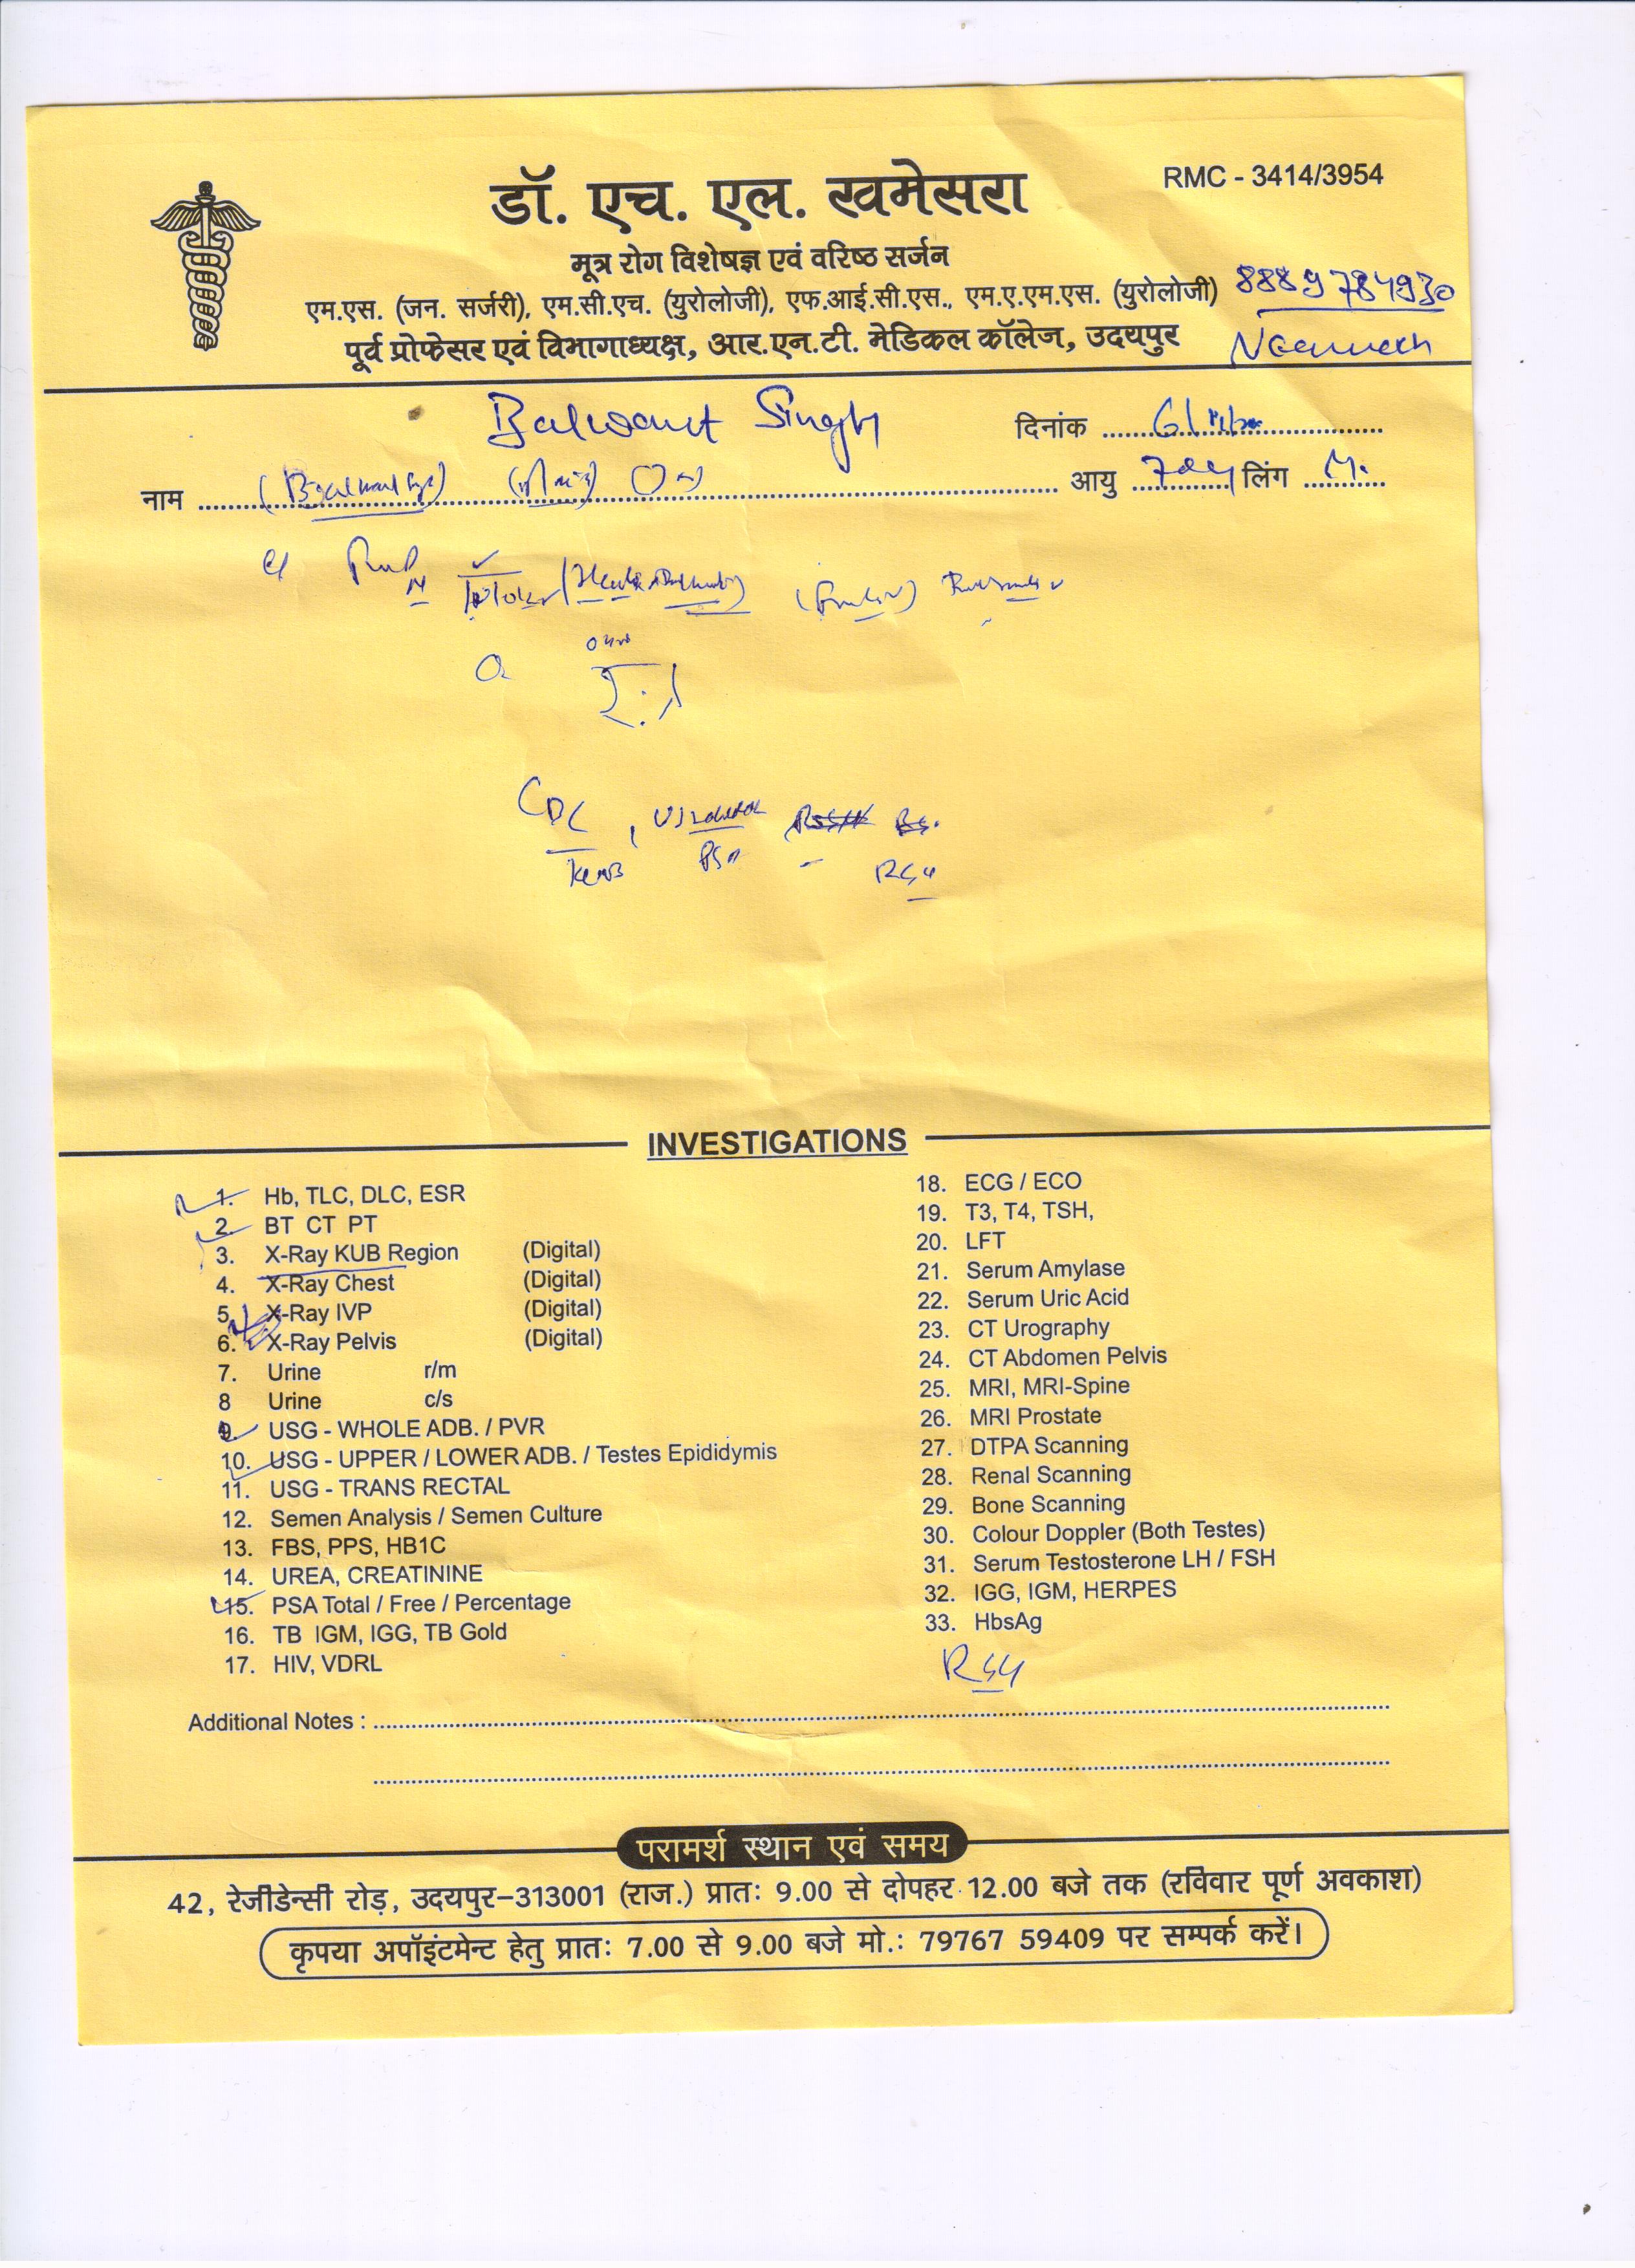 RMC - 3414/3954
डॉ. एच. एल. खमेसरा
मूत्र रोग विशेषज्ञ एवं वरिष्ठ सर्जन
एम.एस. (जन. सर्जरी), एम.सी.एच. (युरोलोजी), एफ.आई.सी.एस., एम.ए.एम.एस. (युरोलोजी) 8889784930
पूर्व प्रोफेसर एवं विभागाध्यक्ष, आर.एन.टी. मेडिकल कॉलेज, उदयपुर
Balwant Singh दिनांक
नाम आयु लिंग M.
INVESTIGATIONS
1. Hb, TLC, DLC, ESR
2. BT CT PT
3. X-Ray KUB Region (Digital)
4. X-Ray Chest (Digital)
5. X-Ray IVP (Digital)
6. X-Ray Pelvis (Digital)
7. Urine r/m
8 Urine c/s
9. USG - WHOLE ADB. / PVR
10. USG - UPPER / LOWER ADB. / Testes Epididymis
11. USG - TRANS RECTAL
12. Semen Analysis / Semen Culture
13. FBS, PPS, HB1C
14. UREA, CREATININE
15. PSA Total / Free / Percentage
16. TB IGM, IGG, TB Gold
17. HIV, VDRL
18. ECG / ECO
19. T3, T4, TSH,
20. LFT
21. Serum Amylase
22. Serum Uric Acid
23. CT Urography
24. CT Abdomen Pelvis
25. MRI, MRI-Spine
26. MRI Prostate
27. DTPA Scanning
28. Renal Scanning
29. Bone Scanning
30. Colour Doppler (Both Testes)
31. Serum Testosterone LH / FSH
32. IGG, IGM, HERPES
33. HbsAg
Additional Notes :
परामर्श स्थान एवं समय
42, रेजीडेन्सी रोड़, उदयपुर-313001 (राज.) प्रातः 9.00 से दोपहर 12.00 बजे तक (रविवार पूर्ण अवकाश)
कृपया अपॉइंटमेन्ट हेतु प्रातः 7.00 से 9.00 बजे मो.: 79767 59409 पर सम्पर्क करें।